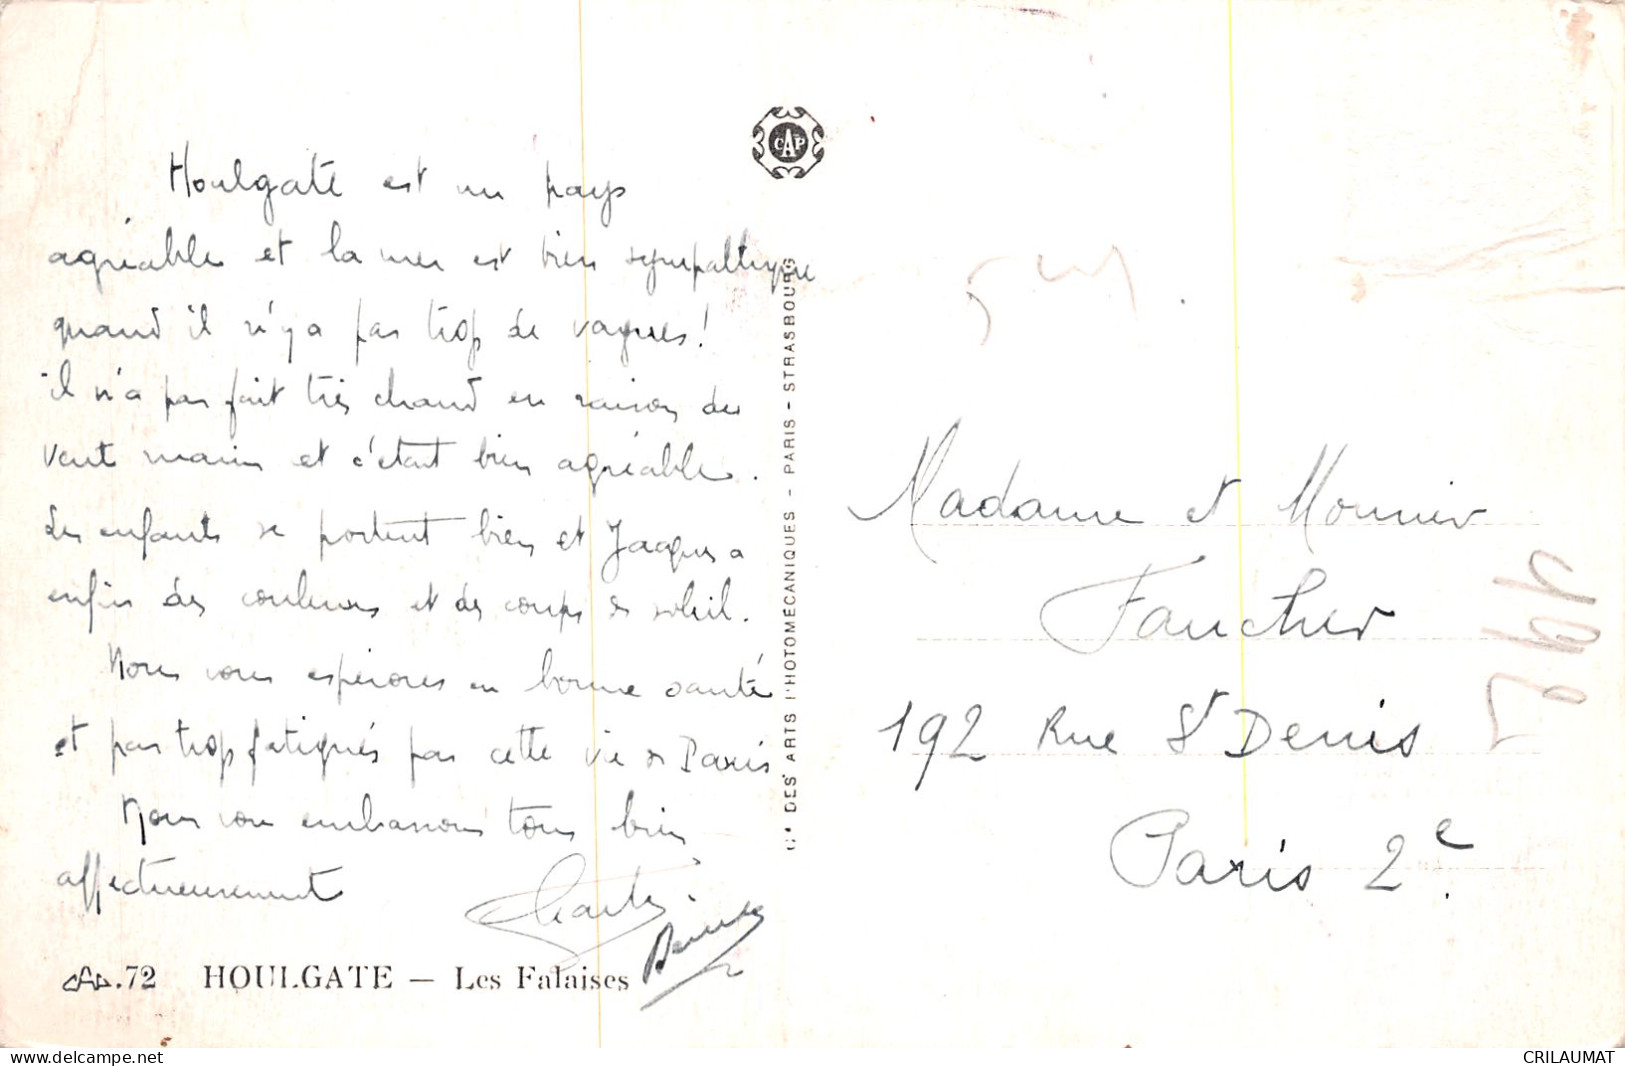 Houlgate est un pays
agréable et la mer est bien sympathique
quand il n'y a pas trop de vagues !
il n'a pas fait très chaud en raison du
vent marin et c'était bien agréable.
Les enfants se portent bien et Jacques a
enfin des couleurs et des coups de soleil.
Nous vous espérons en bonne santé
et pas trop fatigués par cette vie de Paris
Nous vous embrassons tous bien
affectueusement
CAP.72 HOULGATE — Les Falaises
CAP
Cie DES ARTS PHOTOMÉCANIQUES - PARIS - STRASBOURG
Madame et Monsieur
Faucher
192 Rue St Denis
Paris 2e.
www.delcampe.net
CRILAUMAT